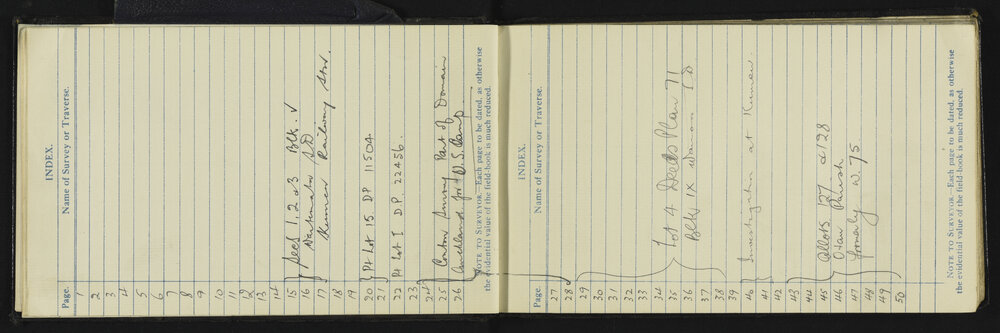 INDEX.
Page. Name of Survey or Traverse.
1
2
3
4
5
6
7
8
9
10
11
12
13
14
15 Secs 1, 2 & 3 Blk. V
16 Waitemata S.D
17 Kumeu Railway Stn.
18
19
20 Pt Lot 15 DP 11504
21
22 Pt Lot 1 D.P. 22456.
23
24
25 Contour Survey Part of Domain
26 Auckland for U.S. Camp
NOTE TO SURVEYOR.—Each page to be dated, as otherwise
the evidential value of the field-book is much reduced.
INDEX.
Page. Name of Survey or Traverse.
27
28
29
30
31
32
33
34 Lot 4 Deeds Plan 71
35
36 Blks IX S.D
37
38
39
40 Investigation at Kumeu.
41
42
43
44
45 Allots 127 & 128
46 Parish
47 formerly W. 75
48
49
50
NOTE TO SURVEYOR.—Each page to be dated, as otherwise
the evidential value of the field-book is much reduced.